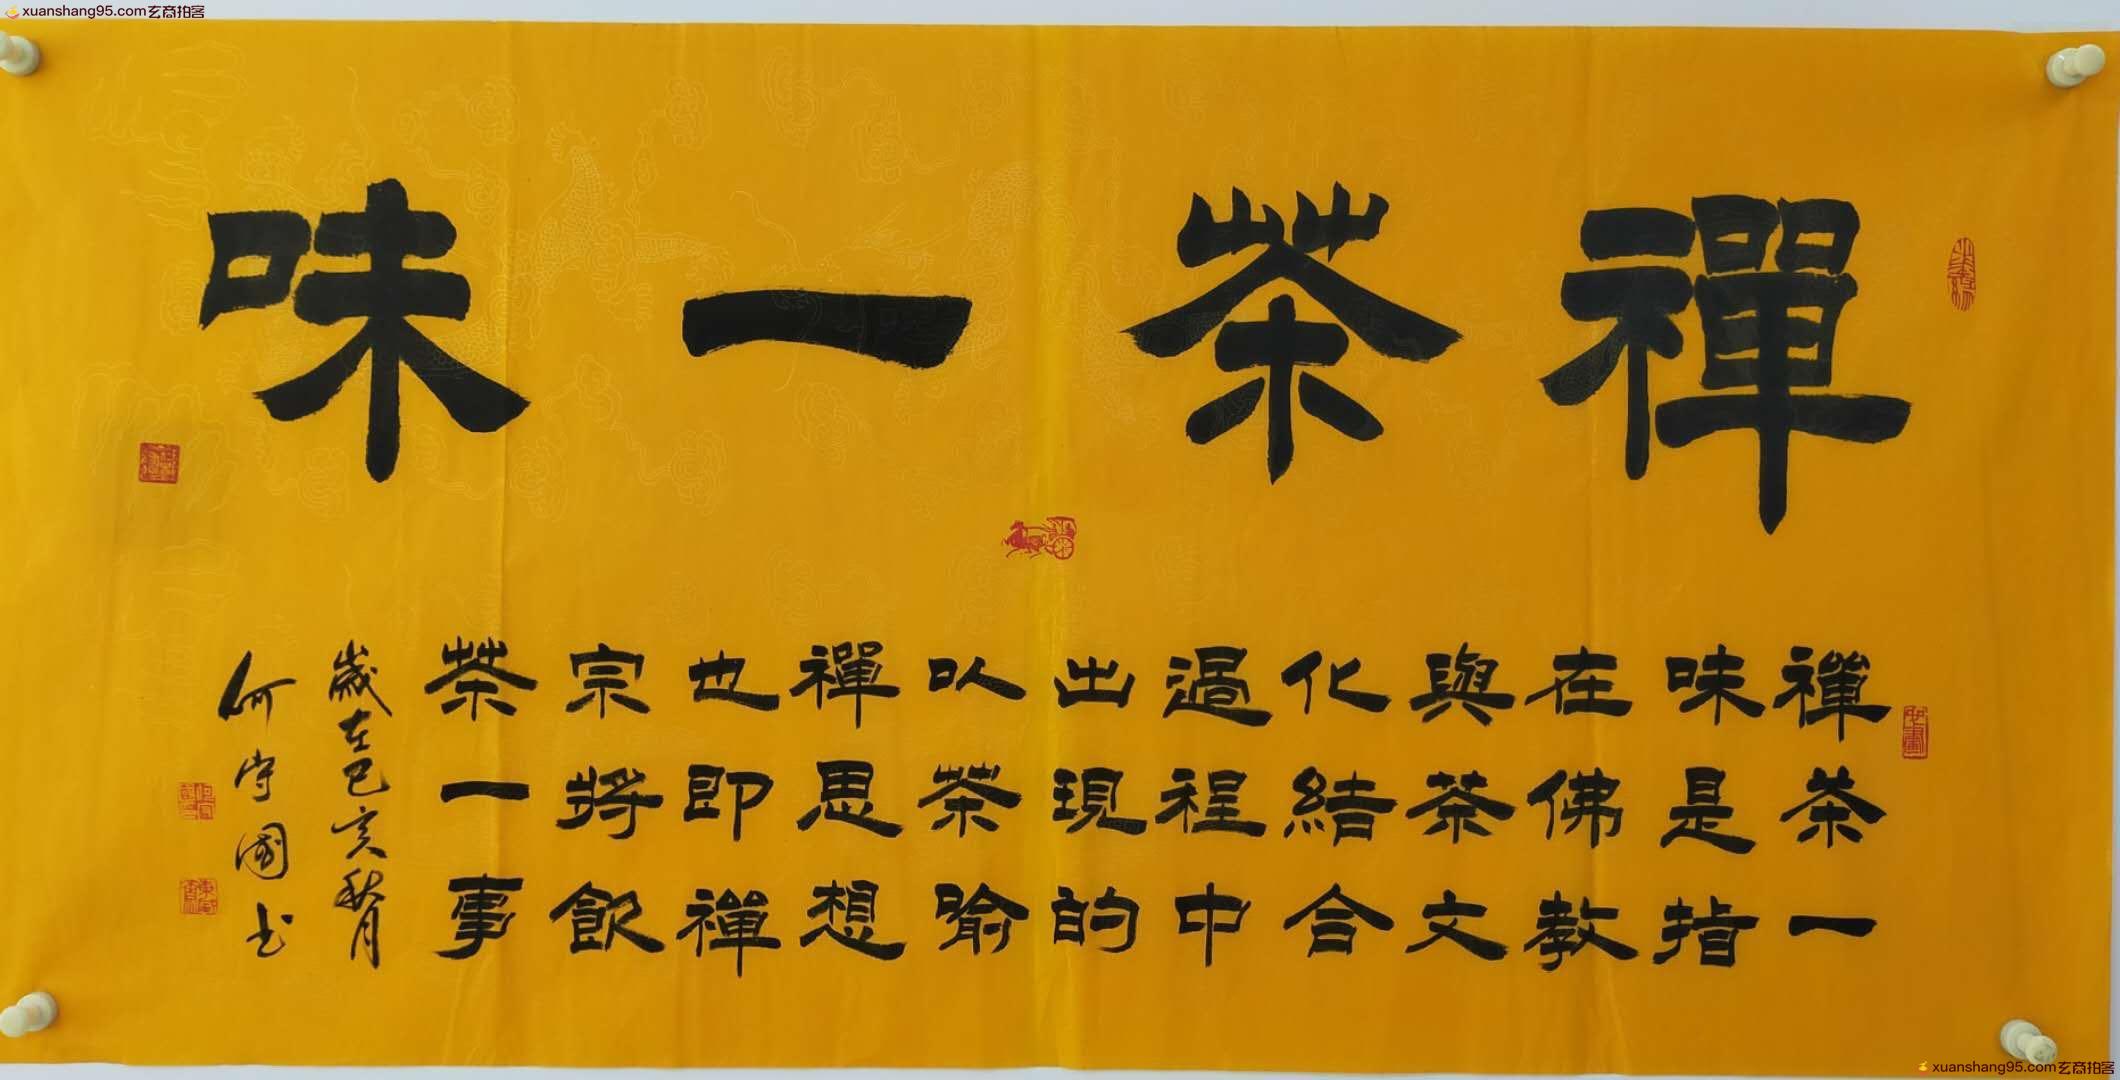 xuanshang95.com玄商拍客
禪茶一味
禪茶一
味是指
在佛教
與茶文
化結合
過程中
出現的
以茶喻
禪思想
也即禪
宗將飲
茶一事
歲在己亥秋月
何守國書
xuanshang95.com玄商拍客